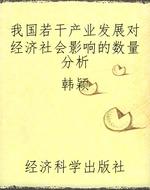 我国若干产业发展对
经济社会影响的数量
分析
韩颖
经济科学出版社